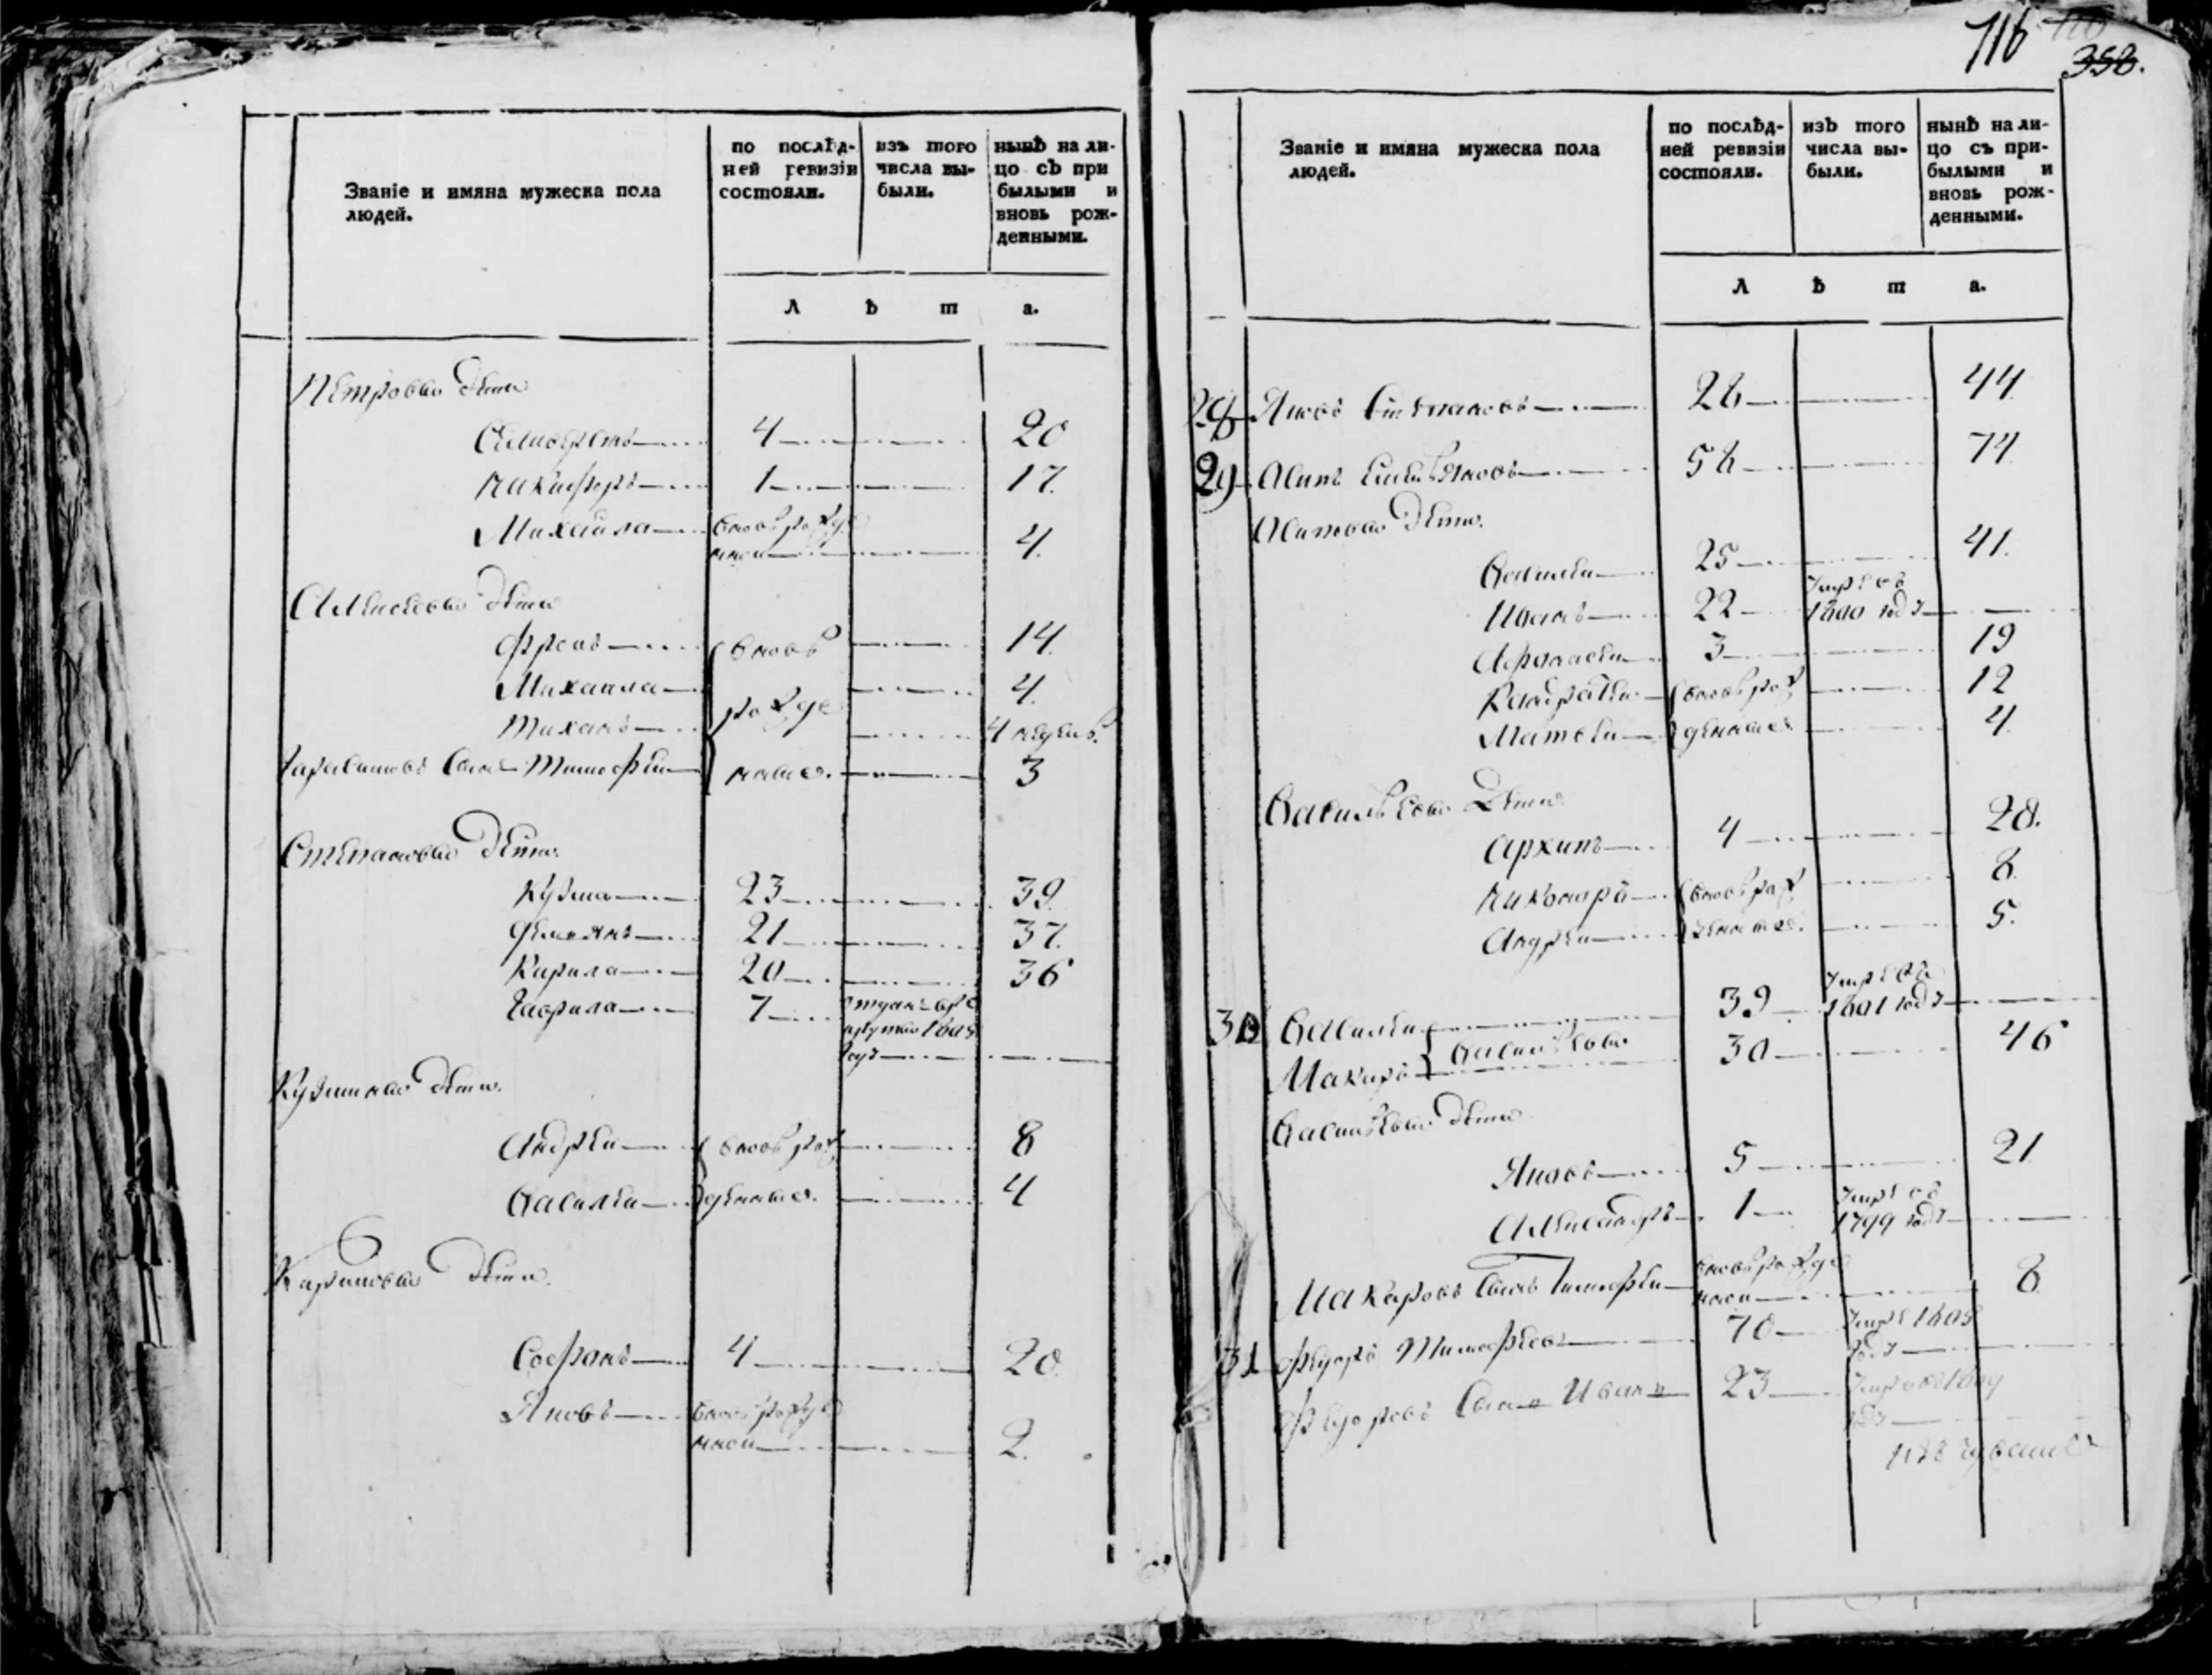 716 110
358.
Званіе и имяна мужеска пола
людей.
по послѣд-
ней ревизіи
состояли.
изъ того
числа вы-
были.
нынѣ на ли-
цо съ при
былыми и
вновь рож-
денными.
л ѣ т а.
Петровы дети
Селиверстъ 4 20
Никифоръ 1 17.
Михайла вновь рожде
нной 4.
Алексеевы дети
Фролъ вновь 14.
Михайла рожде 4.
Тихонъ 4 недель.
сынъ Тимофеи нные. 3
Степановы дети.
Кузма 23 39.
Демьянъ 21 37.
Кирила 20 36
Гаврила 7 отданъ в ре
круты 1805
году
Кузмины дети.
Андреи вновь рож 8
Василеи денные. 4
Кириловы дети.
Софронъ 4 20.
Яковъ вновь рожде
нной 2.
Званіе и имяна мужеска пола
людей.
по послѣд-
ней ревизіи
состояли.
изъ того
числа вы-
были.
нынѣ на ли-
цо съ при-
былыми и
вновь рож-
денными.
л ѣ т а.
28 Яковъ Степановъ 28 44
29 Осипъ 58 74
Осиповы дети.
Василеи 25 41.
Иванъ 22 умре въ
1800 году
Афонасеи 3 19
Кондратеи вновь рож 12
Матвеи денные 4
Васильевы дети
Архипъ 4 20.
Никоноръ вновь рож 8.
Андреи денные. 5.
30 Василеи 39 умре въ
1801 году
Макаръ Васильевы 30 46
Васильевы дети
Яковъ 5 21
Александръ 1 умре въ
1799 году
Макаровъ сынъ Тимофеи вновь рожде
нной 8
31 Федоръ Тимофеевъ 70 умре 1805
году
Федоровъ сынъ Иванъ 23
году
изъ чувашъ